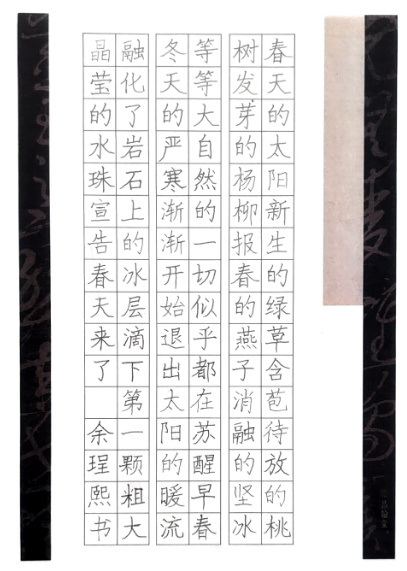 春天的太阳新生的绿草含苞待放的桃
树发芽的杨柳报春的燕子消融的坚冰
等等大自然的一切似乎都在苏醒早春
冬天的严寒渐渐开始退出太阳的暖流
融化了岩石上的冰层滴下第一颗粗大
晶莹的水珠宣告春天来了 余珵熙书